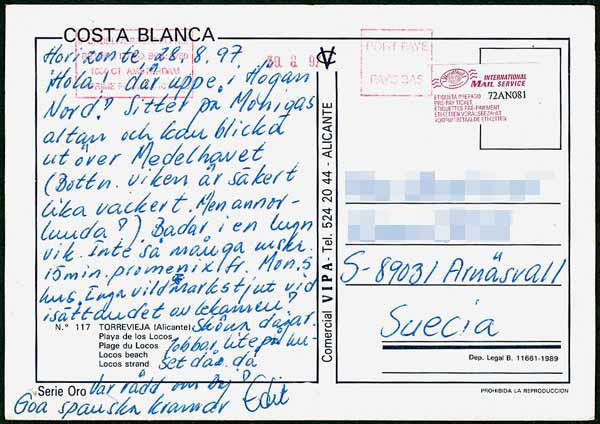 COSTA BLANCA
Horizonte, 28.8.97.
Hola, där uppe i Högan
Nord! Sitter på Monigas
altan och kan blicka
ut över Medelhavet
(Bottn. viken är säkert
lika vackert. Men annor-
luuda?) Badar i en lugn
vik. Inte så många mskr.
15 min. promenix fr. Mon:s
hus. Ingn vildmarkstjut vid
Sköna dagar.
Jobbar lite på hu-
set då o. då
Var rädd om Dej! Edit
Goa spanska kramar
N.º 117 TORREVIEJA (Alicante)
Playa de los Locos
Plage du Locos
Locos beach
Locos strand
Serie Oro
Comercial VIPA - Tel. 524 20 44 - ALICANTE
1000 CT AMSTERDAM
30. 8. 9
PORT PAYE
PAYS BAS
INTERNATIONAL
MAIL SERVICE
72AN081
ETIQUETA PREPAGO
PRE-PAY TICKET
S-89031 Arnäsvall
Suecia
Dep. Legal B. 11661-1989
PROHIBIDA LA REPRODUCCION